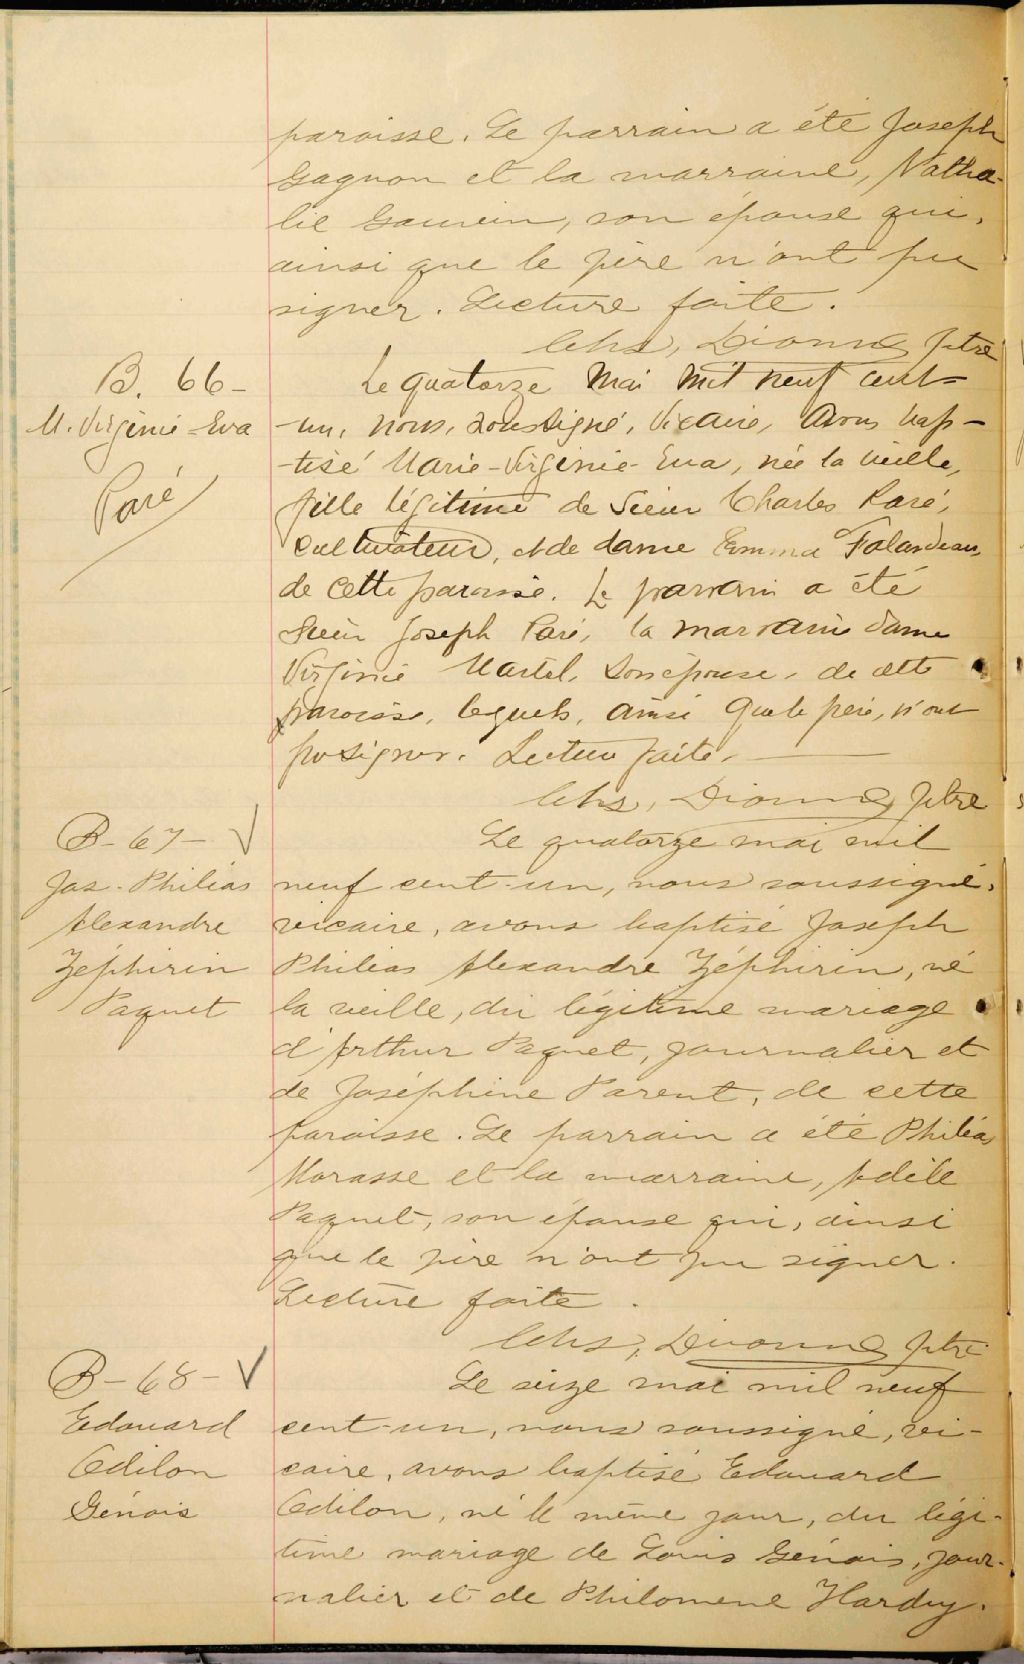 paroisse. Le parrain a été Joseph
Gagnon et la marraine, Natha-
lie Gauvin, son épouse qui,
ainsi que le père n'ont pu
signer. Lecture faite.
Chs, Dionne Ptre
B. 66-
M. Virginie-Eva
Paré
Le quatorze Mai Mil neuf cent-
-un, nous, soussigné, Vicaire, Avons bap-
-tisé Marie-Virginie-Eva, née la veille,
fille légitime de Sieur Charles Paré,
Cultivateur, et de dame Emma Falardeau,
de cette paroisse. Le parrain a été
Sieur Joseph Paré, la marraine dame
Virginie Martel, son épouse, de cette
paroisse, lesquels, ainsi que le père, n'ont
pu signer. Lecture faite.
Chs, Dionne Ptre
B-67-
Jos-Philias
Alexandre
Zéphirin
Paquet
Le quatorze mai mil
neuf cent-un, nous soussigné,
vicaire, avons baptisé Joseph
Philias Alexandre Zéphirin, né
la veille, du légitime mariage
d'Arthur Paquet, journalier et
de Joséphine Parent, de cette
paroisse. Le parrain a été Philéas
Morasse et la marraine, Adèle
Paquet, son épouse qui, ainsi
que le père n'ont pu signer.
Lecture faite.
Chs, Dionne Ptre
B-68-
Edouard
Odilon
Génois
Le seize mai mil neuf
cent-un, nous soussigné, vi-
caire, avons baptisé Edouard
Odilon, né le même jour, du légi-
time mariage de Louis Génois, jour-
nalier et de Philomene Hardy.